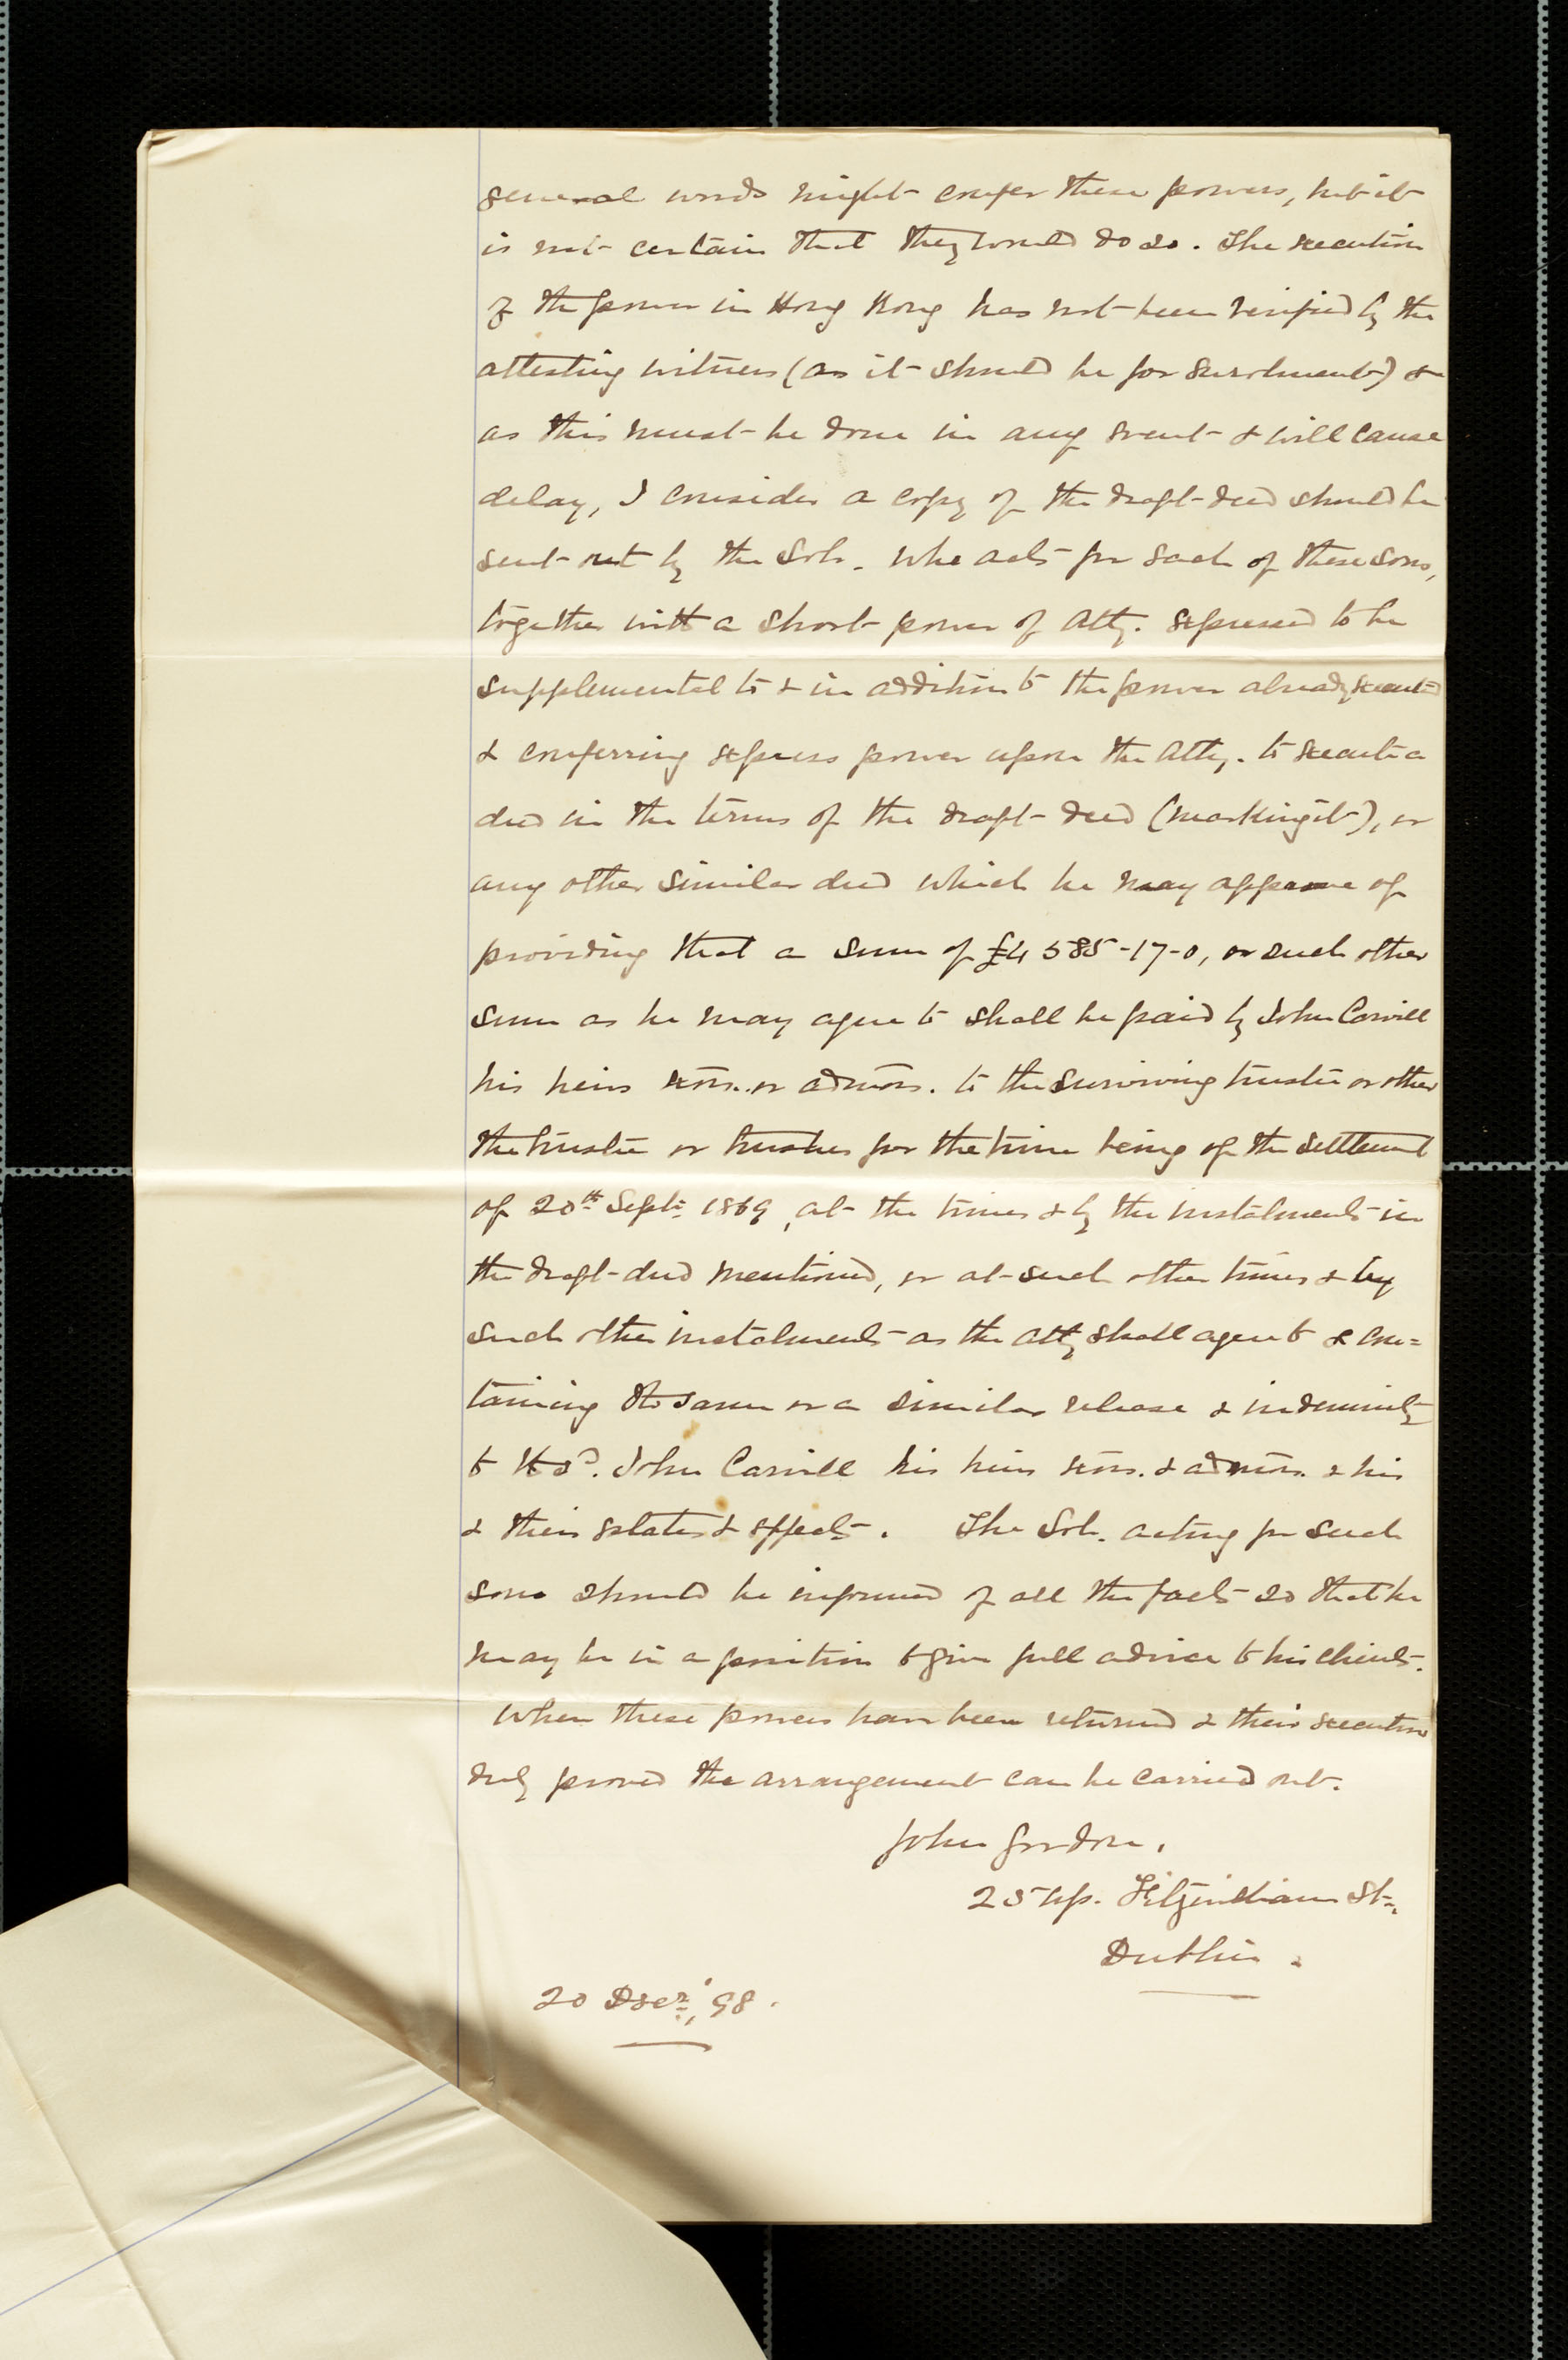 general words might confer these powers, but it
is not certain that they would do so. The execution
of the power in Hong Kong has not been verified by the
attesting witness (as it should be for enrolment) &
as this must be done in any event & will cause
delay, I consider a copy of the draft deed should be
sent out by the Solr. who acts for each of these sons,
together with a short power of Atty. expressed to be
supplemental to & in addition to the power already executed
& conferring express power upon the Atty. to execute a
deed in the terms of the draft deed (marking it), or
any other similar deed which he may approve of
providing that a sum of £4585-17-0, or such other
sum as he may agree to shall be paid by John Carvill
his heirs exors. or admors. to the surviving trustee or other
the trustee or trustees for the time being of the settlement
of 20th Septr. 1869, at the times & by the instalments in
the draft deed mentioned, or at such other times & by
such other instalments as the Atty shall agree to & con=
taining the same or a similar release & indemnity
to the sd. John Carvill his heirs exors. & admors. & his
& their estates & effects. The Solr. acting for such
sons should be informed of all the facts so that he
may be in a position to give full advice to his clients.
When these powers have been returned & their execution
duly proved the arrangement can be carried out.
John Gordon,
25 Up. Fitzwilliam St.,
Dublin.
20 Decr., '98.